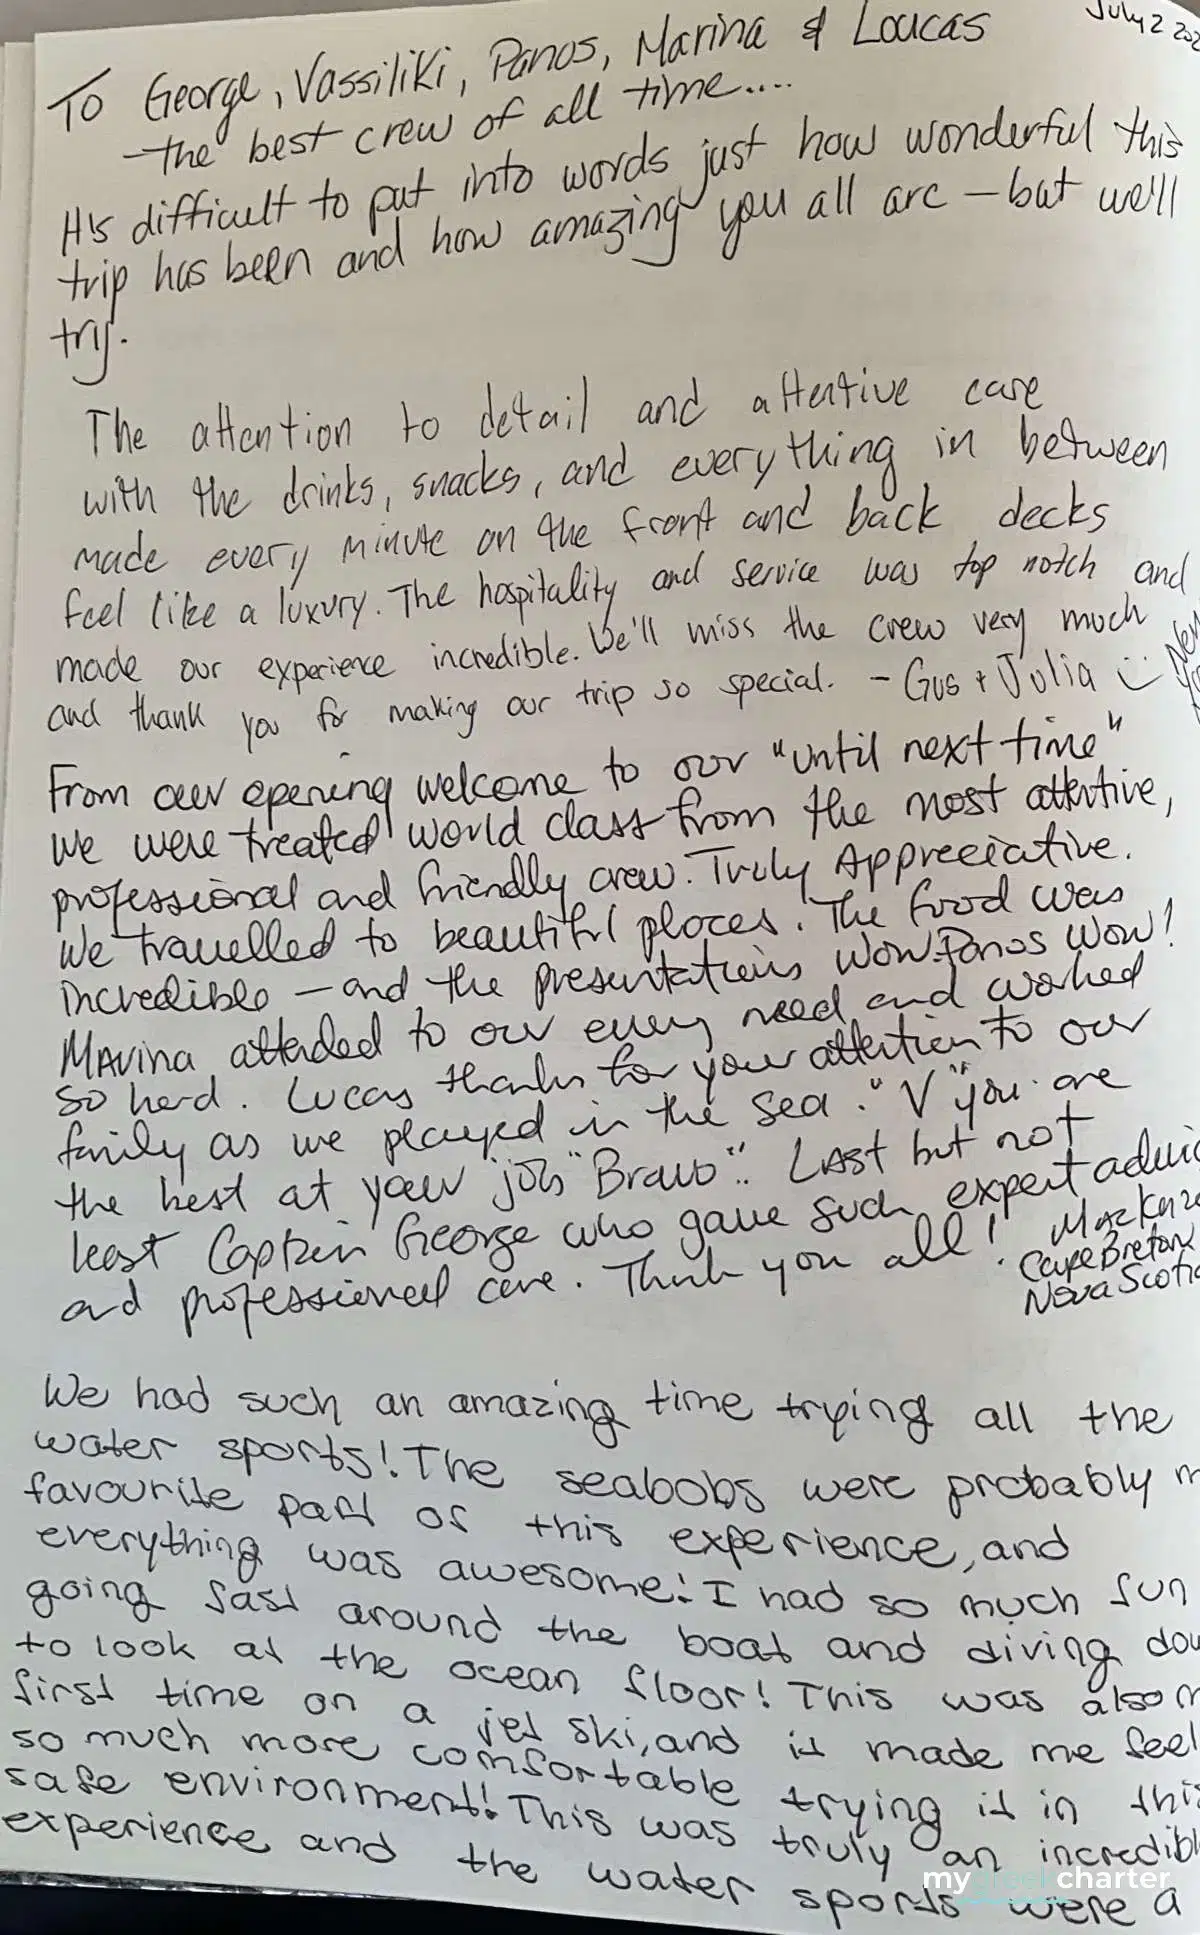 July 2 202
To George, Vassiliki, Panos, Marina & Loucas
- the best crew of all time....
It's difficult to put into words just how wonderful this
trip has been and how amazing you all are - but we'll
try.
The attention to detail and attentive care
with the drinks, snacks, and everything in between
made every minute on the front and back decks
feel like a luxury. The hospitality and service was top notch and
made our experience incredible. We'll miss the crew very much
and thank you for making our trip so special. - Gus + Julia
From our opening welcome to our "until next time"
we were treated world class from the most attentive,
professional and friendly crew. Truly Appreciative.
We travelled to beautiful places. The food was
incredible - and the presentations Wow. Panos Wow!
Marina attended to our every need and worked
so hard. Lucas thanks for your attention to our
family as we played in the sea. "V" you are
the best at your job "Bravo". Last but not
least Captain George who gave such expert advic
and professional care. Thank you all!
MacKenz
Cape Breton
Nova Scotia
We had such an amazing time trying all the
water sports! The seabobs were probably m
favourite part of this experience, and
everything was awesome! I had so much fun
going fast around the boat and diving dow
to look at the ocean floor! This was also m
first time on a jet ski, and it made me feel
so much more comfortable trying it in this
safe environment! This was truly an incredibl
experience and the water sports were a
mygreekcharter